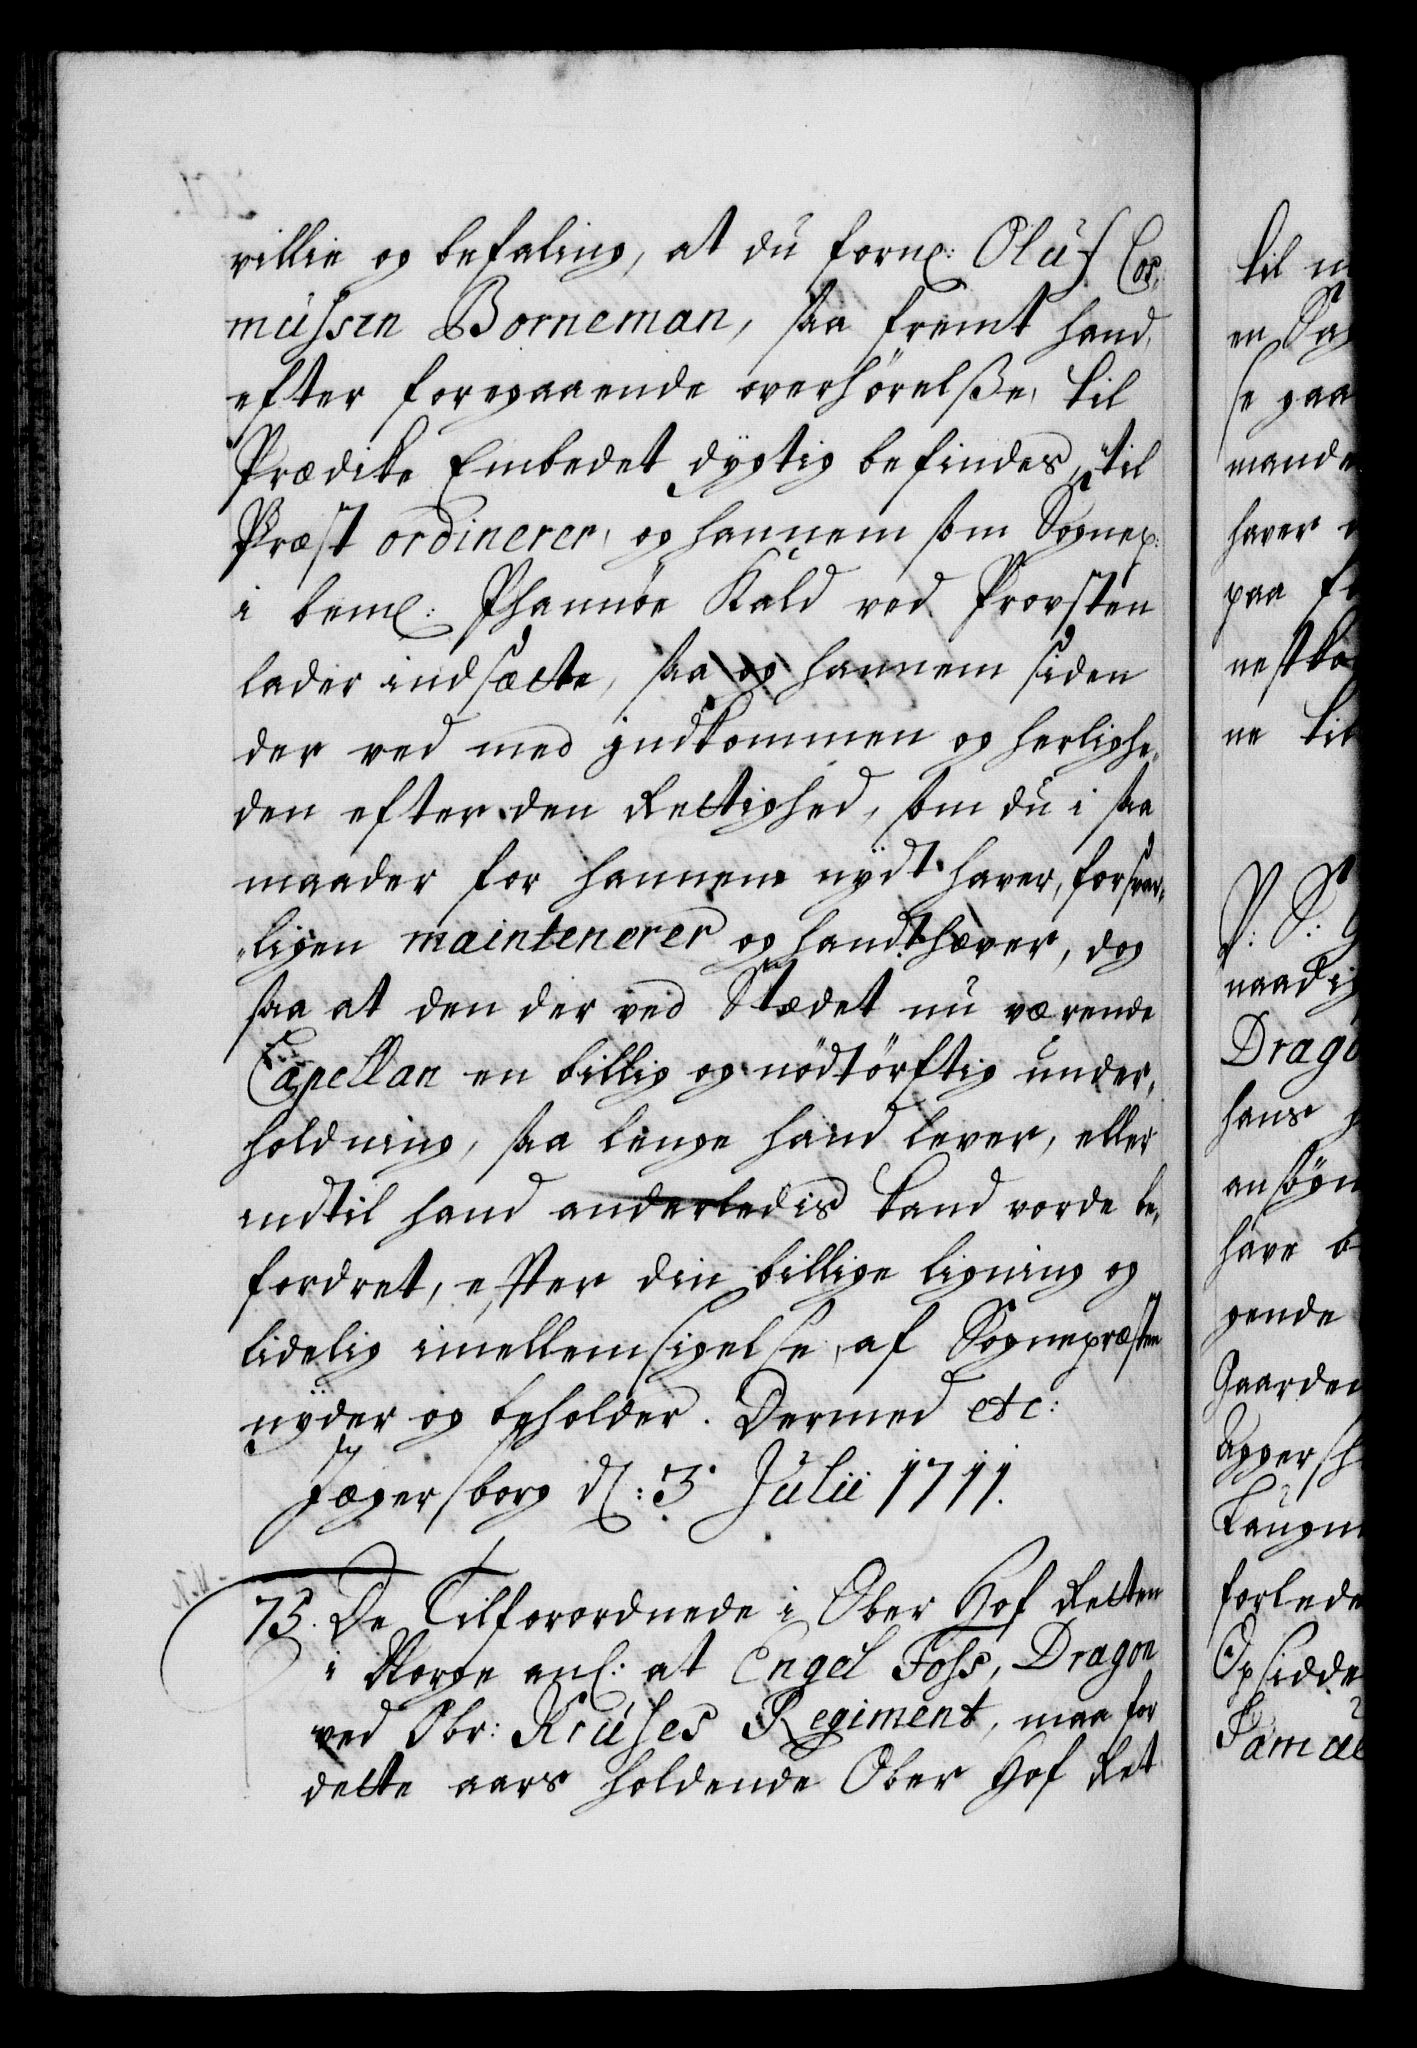 villie og befaling, at du forne: Oluf Cos-
mussen Borneman, saa fremt hand,
efter foregaaende overhørelße, til
Prædike Embedet dygtig befindes, til
Præst ordinerer, og hannem som Sognep:
i beme: Phannøe Kald ved Provsten
lader indsætte, saa og hannem siden
der ved med indkommen og herlighe-
den efter den Rettighed, som du i saa
maader for hannem nydt haver, forsvar-
ligen maintenerer og handthæver, dog
saa at den der ved Stædet nu værende
Capellan en billig og nødtørftig under-
holdning, saa lenge hand lever, eller
indtil hand anderledis kand vorde be-
fordret, efter din billige ligning og
lidelig imellemsigelse, af Sognepræsten
nyder og beholder. Dermed etc:
Jægersborg d: 3 Julii 1711.
75. De Tilforordnede i Ober Hof Retten
i Norge anl: at Engel Foss, Dragon
ved Obr: Kruses Regiment, maa for
dette aars holdende Ober Hof Ret
til
en
se gaa
mande
haver
paa
ne til
P: S:
naadig
Drago
hans
ansøgn
have
gende
Gaarde
Agger
Laugm
forlede
Opsidde
Samue